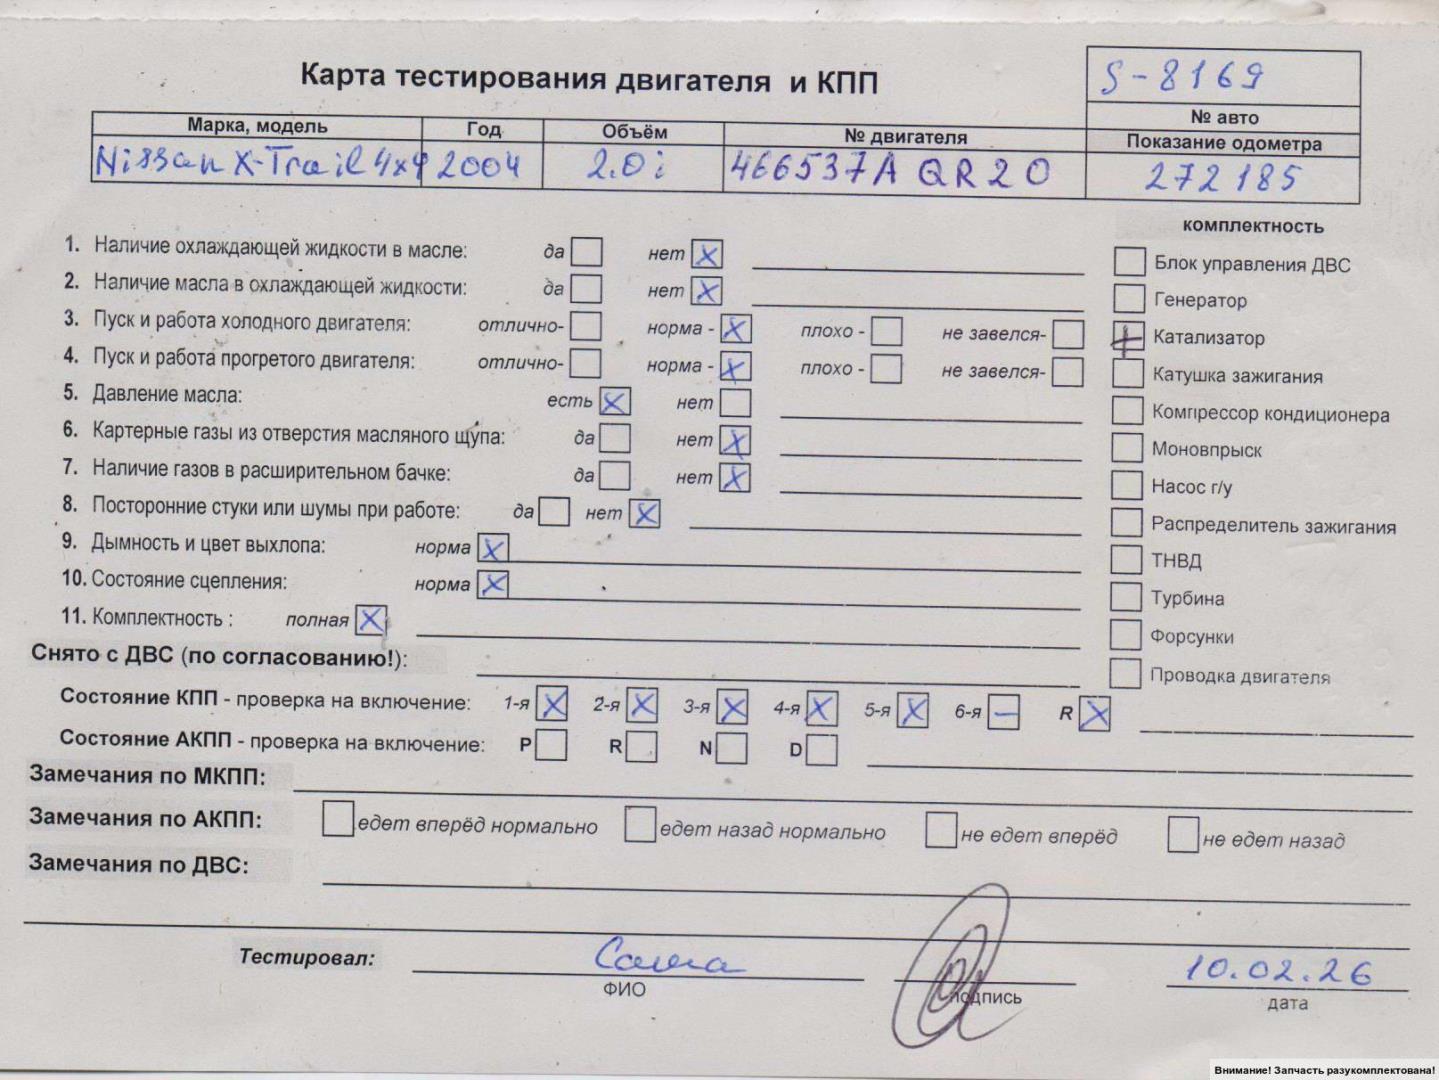 Карта тестирования двигателя и КПП
S-8169
№ авто
Марка, модель Год Объём № двигателя Показание одометра
Nissan X-Trail 4x4 2004 2.0i 466537A QR20 272185
комплектность
1. Наличие охлаждающей жидкости в масле: да нет X
Блок управления ДВС
2. Наличие масла в охлаждающей жидкости: да нет X
Генератор
3. Пуск и работа холодного двигателя: отлично- норма - X плохо - не завелся-
Катализатор
4. Пуск и работа прогретого двигателя: отлично- норма - X плохо - не завелся-
Катушка зажигания
5. Давление масла: есть X нет
Компрессор кондиционера
6. Картерные газы из отверстия масляного щупа: да нет X
Моновпрыск
7. Наличие газов в расширительном бачке: да нет X
Насос г/у
8. Посторонние стуки или шумы при работе: да нет X
Распределитель зажигания
9. Дымность и цвет выхлопа: норма X
ТНВД
10. Состояние сцепления: норма X
Турбина
11. Комплектность : полная X
Форсунки
Снято с ДВС (по согласованию!):
Проводка двигателя
Состояние КПП - проверка на включение: 1-я X 2-я X 3-я X 4-я X 5-я X 6-я — R X
Состояние АКПП - проверка на включение: P R N D
Замечания по МКПП:
Замечания по АКПП: едет вперёд нормально едет назад нормально не едет вперёд не едет назад
Замечания по ДВС:
Тестировал: Саша 10.02.26
ФИО подпись дата
Внимание! Запчасть разукомплектована!